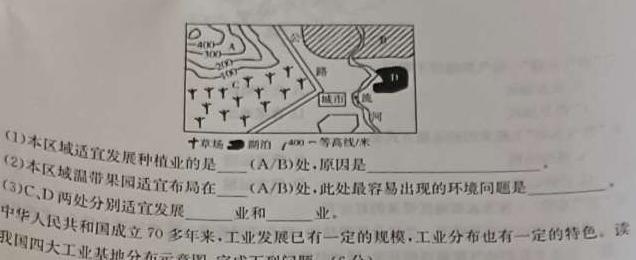 公 B
400 A
300
200
100
路
C
D
城市 流
河
草场 湖泊 400 等高线/米
(1)本区域适宜发展种植业的是____(A/B)处,原因是____。
(2)本区域温带果园适宜布局在____(A/B)处,此处最容易出现的环境问题是____。
(3)C、D两处分别适宜发展____业和____业。
中华人民共和国成立70多年来,工业发展已有一定的规模,工业分布也有一定的特色。读
我国四大工业基地分布示意图,完成下列问题。(6分)